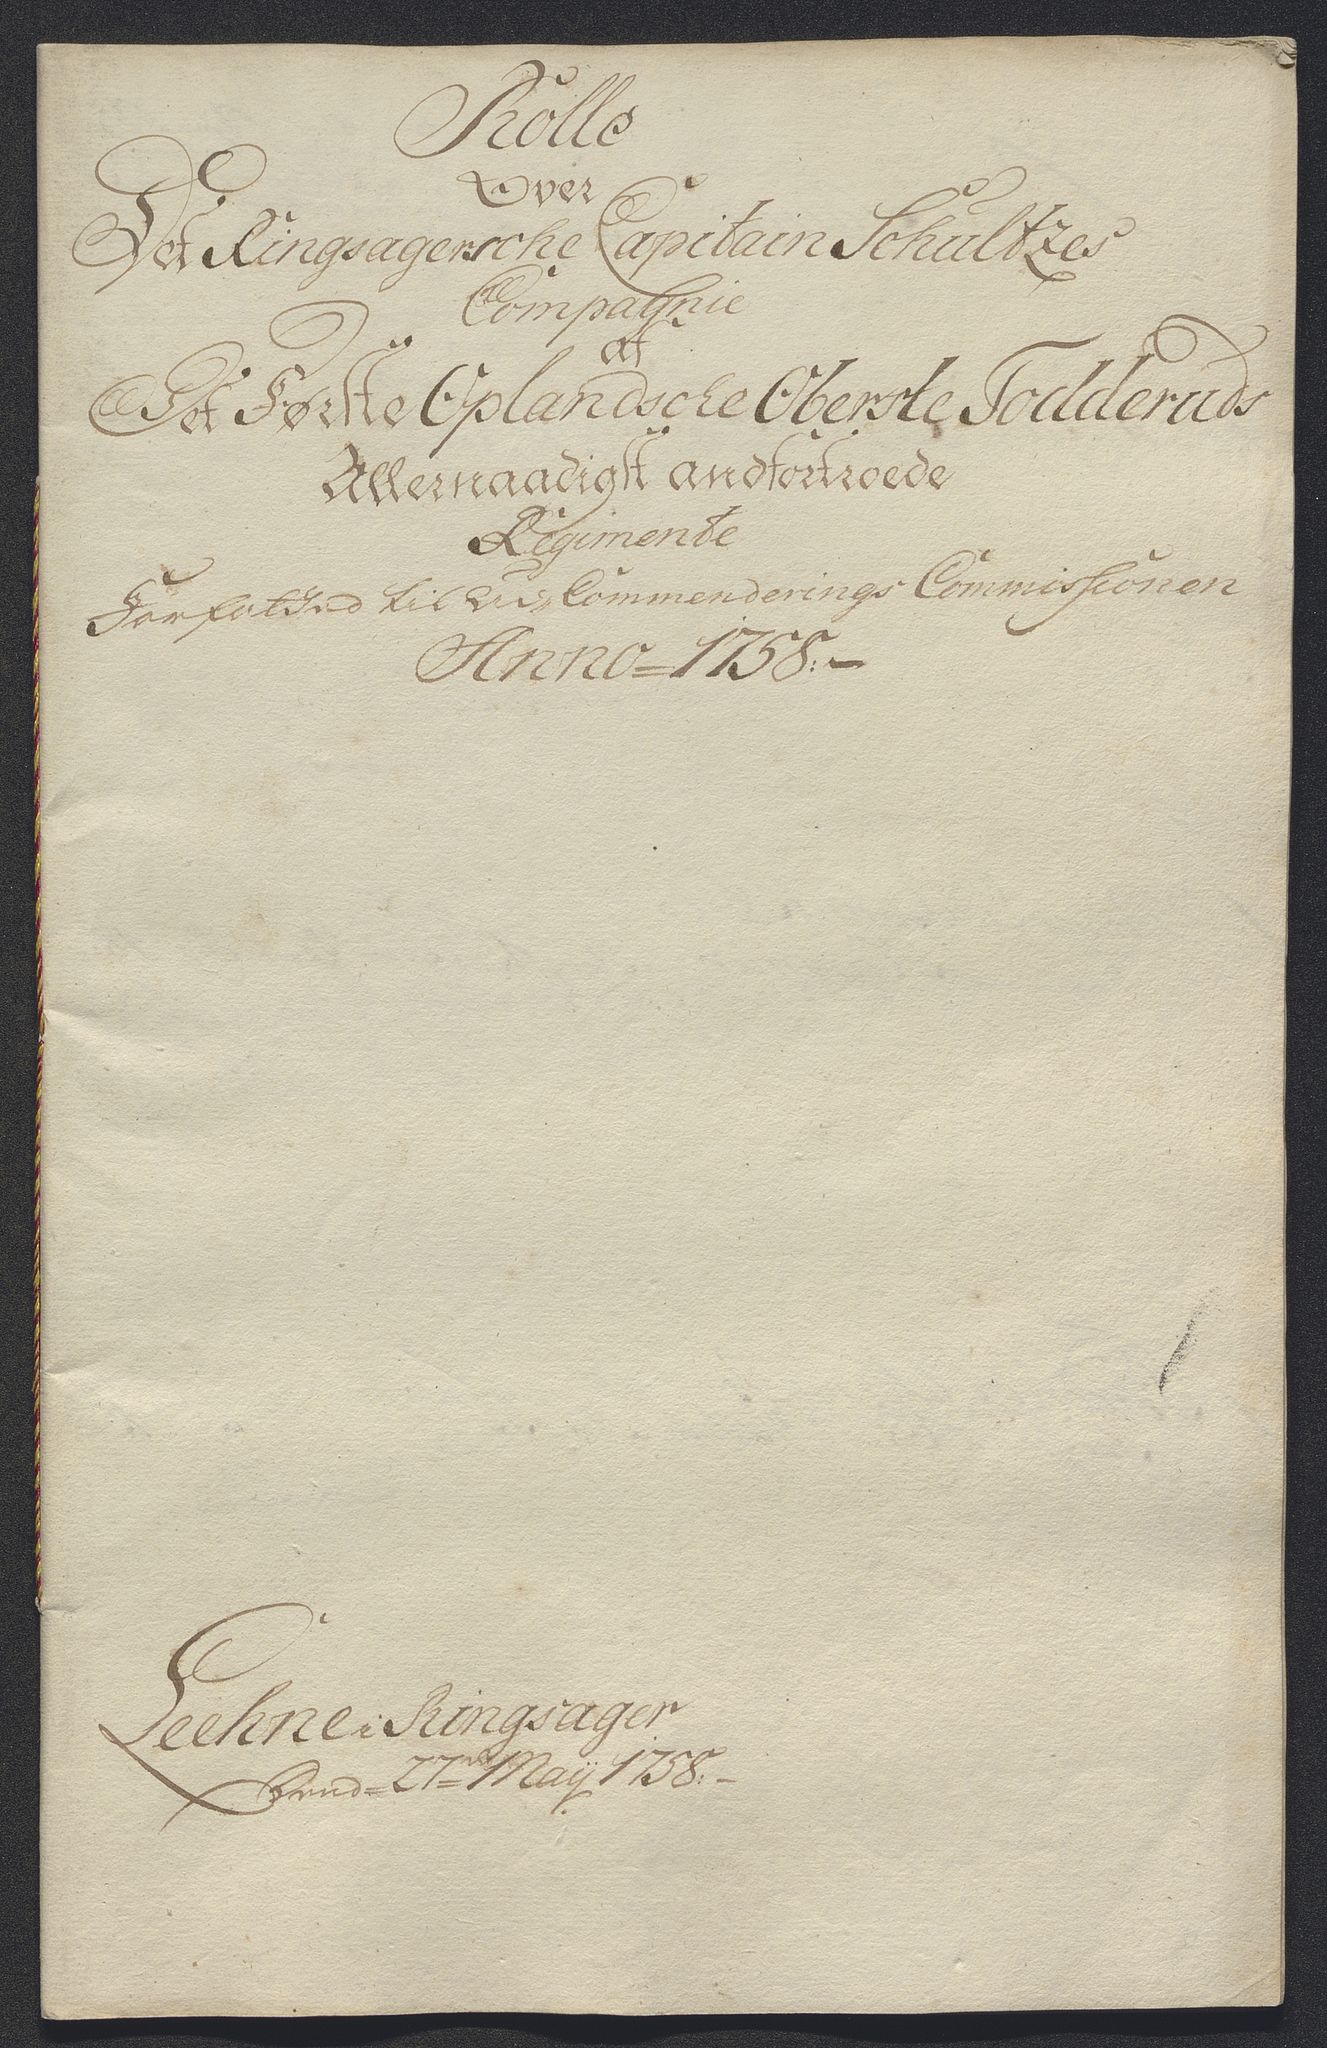 Rolle
Over
Det Ringsagersche Capitain Schultzes
Compagnie
af
Det Første Oplandsche Oberste Todderuds
Allernaadigst andfortroede
Regimente
Forfatted til Ud Commenderings Commissionen
Anno = 1758:-
Leehne i Ringsager
27 Maÿ 1758:-